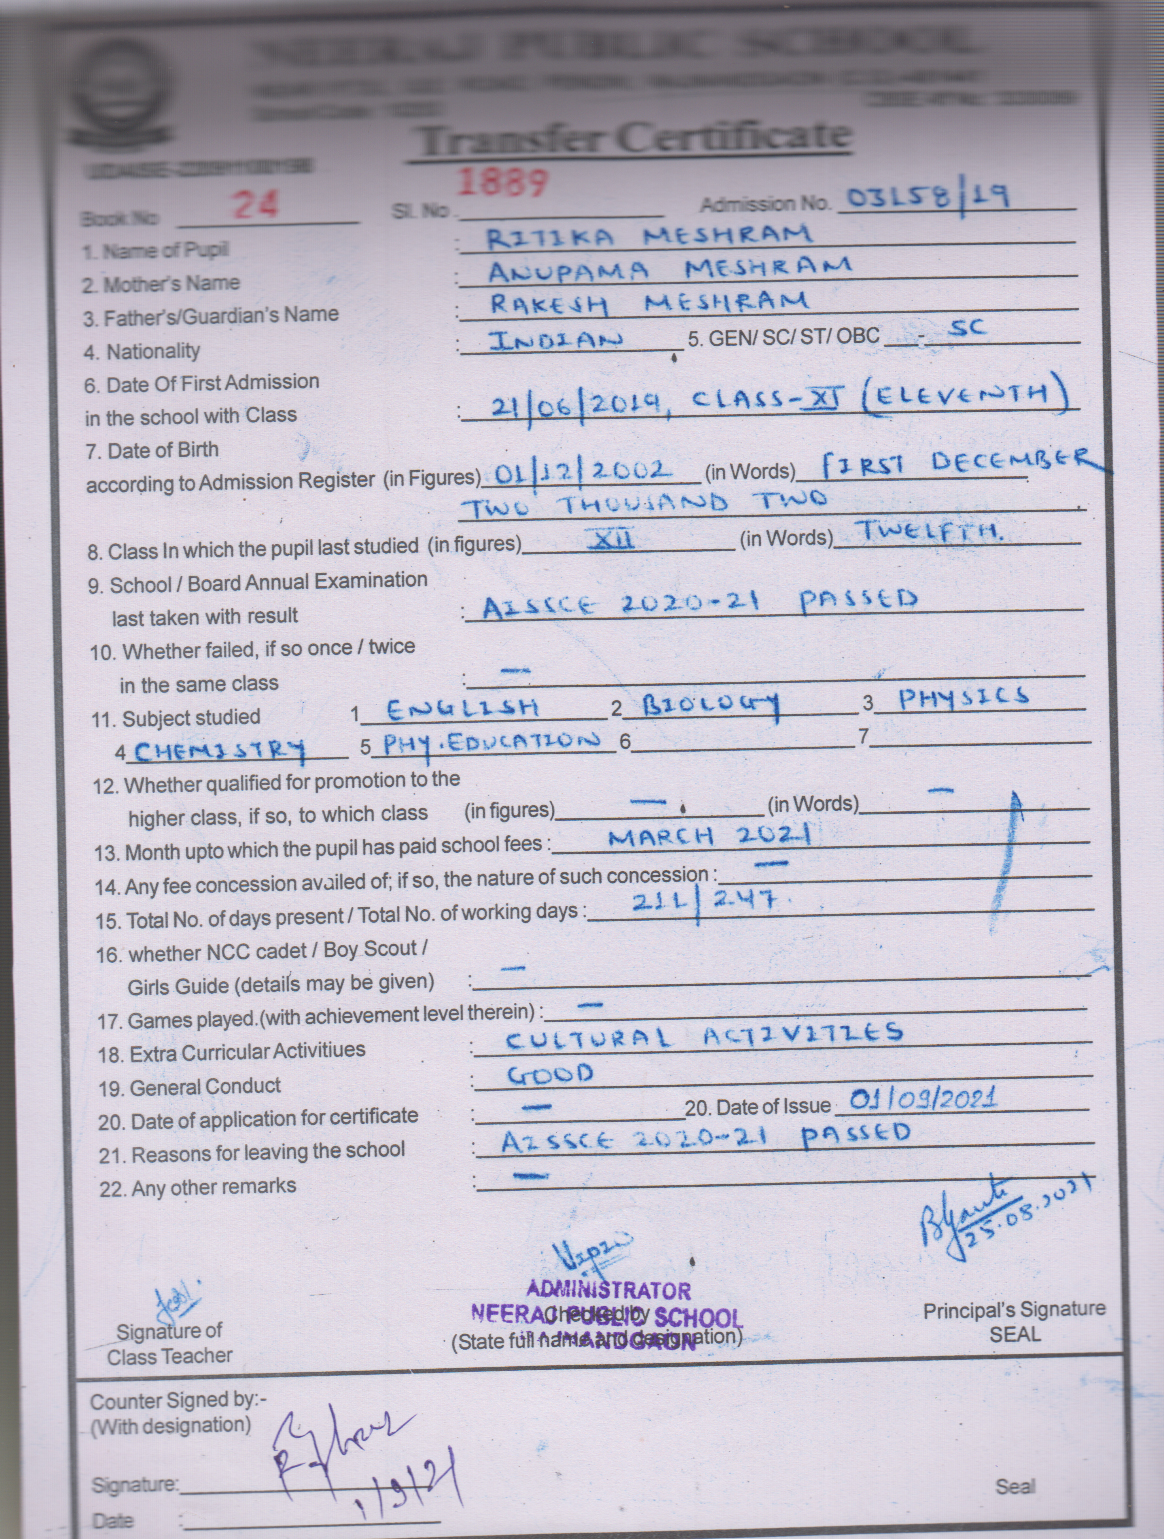 NEERAJ PUBLIC SCHOOL
Transfer Certificate
Book No 24 Sl. No. 1889 Admission No. 03158/19
1. Name of Pupil : RITIKA MESHRAM
2. Mother's Name : ANUPAMA MESHRAM
3. Father's/Guardian's Name : RAKESH MESHRAM
4. Nationality : INDIAN 5. GEN/ SC/ ST/ OBC - SC
6. Date Of First Admission
in the school with Class : 21/06/2019, CLASS-XI (ELEVENTH)
7. Date of Birth
according to Admission Register (in Figures) 01/12/2002 (in Words) FIRST DECEMBER
TWO THOUSAND TWO
8. Class In which the pupil last studied (in figures) XII (in Words) TWELFTH.
9. School / Board Annual Examination
last taken with result : AISSCE 2020-21 PASSED
10. Whether failed, if so once / twice
in the same class : —
11. Subject studied 1 ENGLISH 2 BIOLOGY 3 PHYSICS
4 CHEMISTRY 5 PHY. EDUCATION 6 7
12. Whether qualified for promotion to the
higher class, if so, to which class (in figures) — (in Words) —
13. Month upto which the pupil has paid school fees : MARCH 2021
14. Any fee concession availed of; if so, the nature of such concession : —
15. Total No. of days present / Total No. of working days : 211/247.
16. whether NCC cadet / Boy Scout /
Girls Guide (details may be given) : —
17. Games played.(with achievement level therein) : —
18. Extra Curricular Activitiues : CULTURAL ACTIVITIES
19. General Conduct : GOOD
20. Date of application for certificate : — 20. Date of Issue 01/09/2021
21. Reasons for leaving the school : AISSCE 2020-21 PASSED
22. Any other remarks : —
25.08.2021
ADMINISTRATOR
NEERAJ PUBLIC SCHOOL
RAJNANDGAON
Checked by
(State full name and designation)
Signature of
Class Teacher
Principal's Signature
SEAL
Counter Signed by:-
(With designation)
Signature:
1/9/21
Seal
Date :